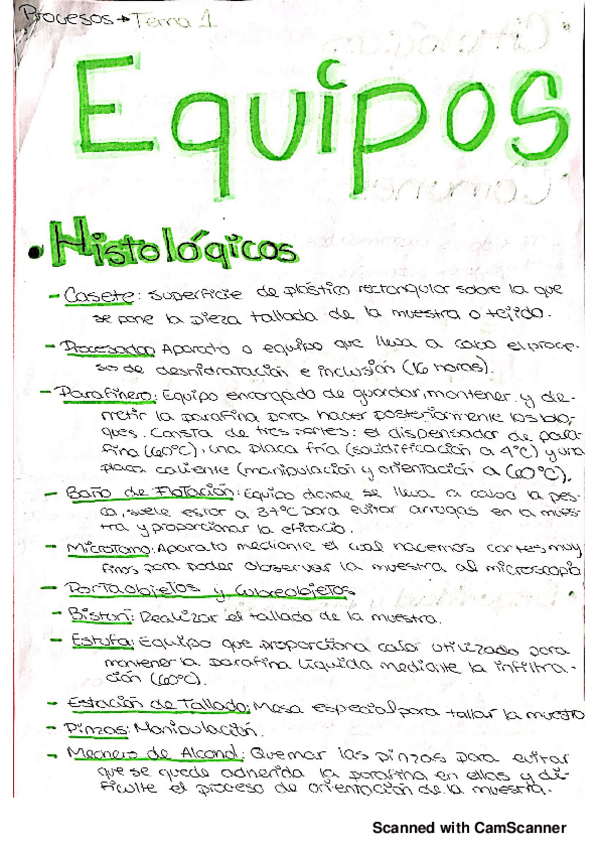 Procesos → Tema 1
Equipos
• Histológicos
- Casete: superficie de plástico rectangular sobre la que
se pone la pieza tallada de la muestra o tejido.
- Procesador: Aparato o equipo que lleva a cabo el proce-
so de deshidratación e inclusión (16 horas).
- Parafinero: Equipo encargado de guardar, mantener y de-
rretir la parafina para hacer posteriormente los blo-
ques. Consta de tres partes: el dispensador de para-
fina (60°C), una placa fría (solidificación a 4°C) y una
placa caliente (manipulación y orientación a 60°C).
- Baño de Flotación: Equipo donde se lleva a cabo la pes-
ca, suele estar a 37°C para evitar arrugas en la mues-
tra y proporcionar la
- Microtomo: Aparato mediante el cual hacemos cortes muy
finos para poder observar la muestra al microscopio
- Portaobjetos y Cubreobjetos
- Bisturí: Realizar el tallado de la muestra.
- Estufa: Equipo que proporciona calor utilizado para
mantener la parafina líquida mediante la infiltra-
ción (60°C).
- Estación de Tallado: Mesa especial para tallar la muestra
- Pinzas: Manipulación.
- Mechero de Alcohol: Quemar las pinzas para evitar
que se quede adherida la parafina en ellas y di-
ficulte el proceso de orientación de la muestra.
Scanned with CamScanner